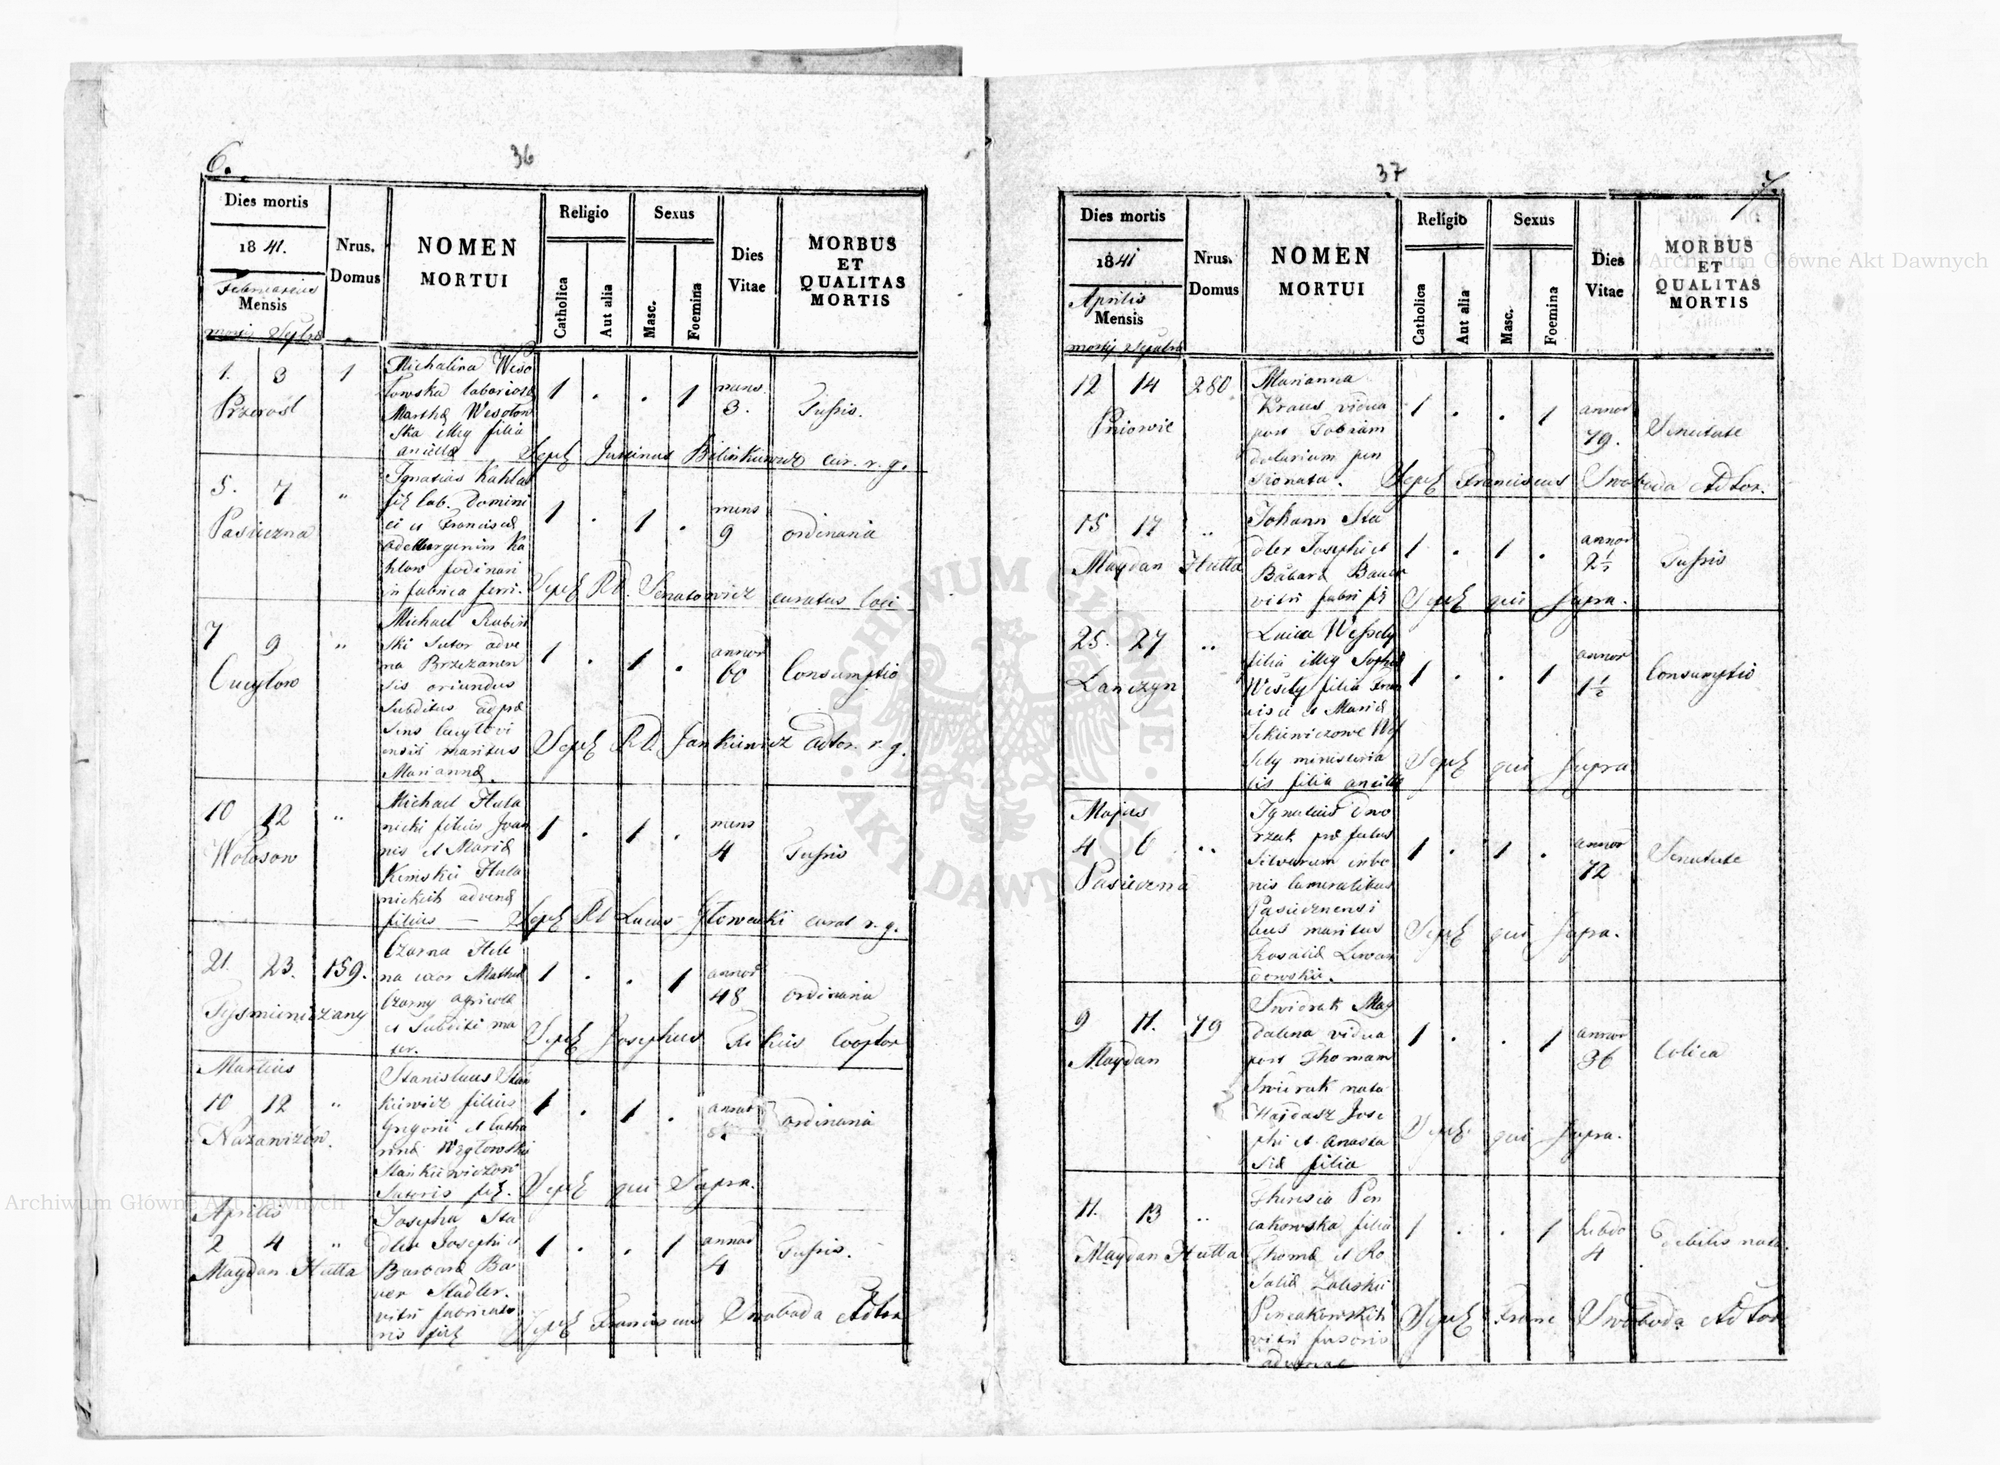 6.
36
Dies mortis
1841.
Februarius
Mensis
Nrus.
Domus
NOMEN
MORTUI
Religio
Catholica
Aut alia
Sexus
Masc.
Foemina
Dies
Vitae
MORBUS
ET
QUALITAS
MORTIS
1. 3 1
Przerośl
Michalina Weso
łowska laboriosæ
Marthæ Wesołow
ska illeg filia
ancillæ
1 . . 1
mens
3.
Tussis.
Sepel Justinus cur. r. g.
5. 7 "
Pasieczna
Ignatius Kahlau
fil. lab. Domini
ci et Franciscæ
Ka
hlow
in fabrica ferri.
1 . 1 .
mens
9
ordinaria
Sepel Rd. Senatowicz curatus loci
7 9 "
Cucylow
Michael Rubin
ski Sutor adve
na Brzezanen
sis oriundus
Subditus ad præ
sens Cucylovi
ensis maritus
Mariannæ.
1 . 1 .
annor
60
Consumptio
Sepel Rd. Jankiewicz adtor. r. g.
10 12 "
Wołosow
Michael Hula
nicki filius Joan
nis et Mariæ
Kemskie Hula
nickich advenæ
filius —
1 . 1 .
mens
4
Tussis
Sepel Rd Lucas Głowacki curat r. g.
21. 23. 159.
Tysmieniczany
Czarna Hele
na uxor Mathæi
Czarny agricolæ
et Subditi ma
ter.
1 . . 1
annor
48
ordinaria
Sepel Josephus Cooptor
Martius
10 12 "
Nazawizów.
Stanislaus Stan
kiewicz filius
Gregorii et Catha
rinæ Węglowskie
Stankiewiczow
Sutoris fil.
1 . 1 .
ordinaria
Sepel qui Supra.
Aprilis
2 4 "
Maydan Hutta
Josepha Sta
dler Josephi et
Barbaræ Ba
uer Stadler.
vitri fabricato
ris fil
1 . . 1
annor
4
Tussis.
Sepel Franciscus Swoboda Adtor
37
7.
Dies mortis
1841
Aprilis
Mensis
mortis Sepultu
Nrus.
Domus
NOMEN
MORTUI
Religio
Catholica
Aut alia
Sexus
Masc.
Foemina
Dies
Vitae
MORBUS
ET
QUALITAS
MORTIS
12 14 280
Pniowie
Marianna
Kraus vidua
post Tobiam
dolarium pen
sionata.
1 . . 1
annor
79.
Senectute
Sepel Franciscus Swoboda Adtor.
15 17 "
Maydan Hutta
Johann Sta
dler Josephi et
Babaræ Bauer
vitri fabri fil
1 . 1 .
annor
2½
Tussis
Sepel qui Supra.
25. 27 "
Łanczyn
Luica Wessely
filia illeg Sophiæ
Wesely filia Fran
cisci et Mariæ
Sekiewiczowe Wes
sely ministeria
lis filia ancillæ
1 . . 1
annor
1½
Consumptio
Sepel qui Supra
Majus
4 6 "
Pasieczna
Ignatius Dwo
rzak præfectus
Silvarum in bo
nis Cameralibus
Pasiecznensi
bus maritus
Rosaliæ Lewan
dowskie.
1 . 1 .
annor
72
Senectute
Sepel qui Supra.
9 11. 79
Maydan
Swierak Mag
dalena vidua
post Thomam
Swierak nata
Hajdasz Jose
phi et Anasta
siæ filia
1 . . 1
annor
36
Colica
Sepel qui Supra.
11. 13 "
Maydan Hutta
Theresia Pen
cakowska filia
Thomæ et Ro
saliæ Zaleskie
Pencakowskich
vitri fusoris
advenae
1 . . 1
hebdo
4
debilis nata
Sepel Franc Swoboda Adtor
Archiwum Główne Akt Dawnych
Archiwum Główne Akt Dawnych
ARCHIWUM GŁÓWNE · AKT DAWNYCH ·